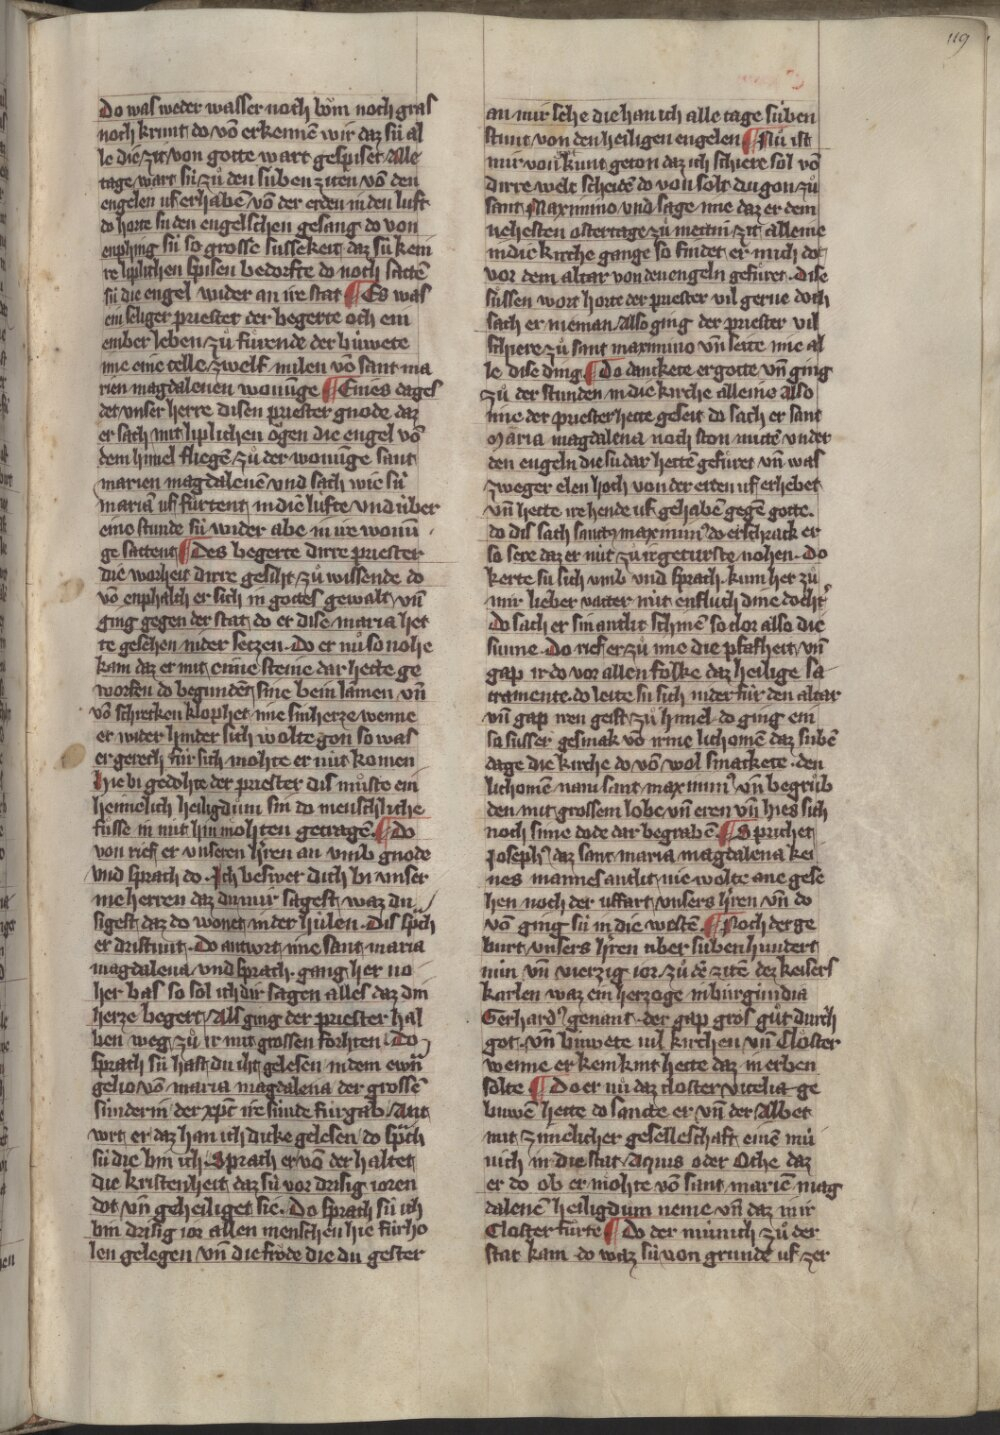 119
Do was weder wasser noch bom noch gras
noch krunt do vō erkennē wir daz sú al
le die zit von gotte wart gespiset Alle
tage wart sú zů den súben ziten vō den
engelen uf erhabē vō der erden in den luft
do horte sú den engelschen gesang do von
enphing sú so grosse sussekeit daz sú kein
re liplichen spisen bedorfte do noch sattē
sú die engel wider an ire stat ¶ Es was
ein seliger priester der begerte och ein
einber leben zů fúrende der búwete
ime eine celle zwelf milen vō sant ma
rien magdalenen wonūge ¶ Eines tages
det unser herre disen priester gnode daz
er sach mit liplichen ōgen die engel vō
dem himel fliegē zů der wonūge sant
marien magdalenen und sach wie sú
mariā uf fůrtent in die lufte und úber
eine stunde sú wider abe in ire wonū
ge sattent ¶ Des begerte dirre priester
die worheit dirre gesiht zů wissende do
vō enphalch er sich in gottes gewalt vn̄
ging gegen der stat do er dise maria het
te gesehen nider setzen Do er nů so nohe
kam daz er mit eime steine dar hette ge
worfen do begundē sine bein lamen vn̄
vō schrecken klophet ime sin herze wenne
er wider hinder sich wolte gon so was
er gerech fúr sich mohte er nút komen
Hie bi gedohte der priester dis můste ein
heimelich heiligdům sin do menschliche
fůsse in mit hin mohten getragē ¶ Do
von rief er unseren h'ren an umb gnode
und sprach do Ich beswer dich bi unser
me herren daz du mir sagest waz du
sigest daz do wonet in der húlen Dis sp̄ch
er dristunt Do antwrt ime sant maria
magdalena und sprach gang her no
her bas so sol ich dir sagen alles daz din
herze begert Als ging der priester hal
ben weg zů ir mit grossen forhten Do
sprach sú hast du iht gelesen in dem ewā
gelio vō maria magdalena der grossē
súnderin der xp̄c ire súnde fúrgab Ant
wrt er daz han ich dicke gelesen do sp̄ch
sú die bin ich Sprach er vō der haltet
die kristenheit daz sú vor drisig ioren
dot vn̄ geheiliget sie Do sprach sú ich
bin drisig ior allen menschen hie fúrho
len gelegen vn̄ die fröde die du gester
an mir sehe die han ich alle tage súben
stunt von den heiligen engelen ¶ Nů ist
mir von kunt geton daz ich schiere sol vō
dirre welt scheidē do von solt du gon zů
sant Maximino und sage ime daz er dem
nehesten ostertage zů mettin zit alleine
in die kirche gange so findet er mich do
vor dem altar von den engeln gefůret Dise
sůssen wort horte der priester vil gerne doch
sach er nieman Also ging der priester vil
schiere zů sant maximino vn̄ seite ime al
le dise ding ¶ Do danckete er gotte vn̄ ging
zů der stunden in die kirche alleine Also
ime der priester hette geseit do sach er sant
Maria magdalena noch ston mittē under
den engeln die sú dar hettē gefůret vn̄ was
zweger elen hoch von der erten uf erhebet
vn̄ hette ire hende uf gehaben gegē gotte
do dis sach sanctꝰ maximinꝰ do erschrack er
so sere daz er nút zů ir geturste nohen Do
kerte sú sich umb und sprach kum her zů
mir lieber vatter nút enfluch dine dochtꝰ
Do sach er sin antlit schinē so clor also die
sunne Do rief er zů ime die pfafheit vn̄
gap ir do vor allen folke daz heilige sa
cramente do leite sú sich nider fúr den altar
vn̄ gap iren geist zů himel do ging ein
so susser gesmak vō irme lichomē daz súbē
dage die kirche do vō wol smackete den
lichomen nam sant maximinꝰ vn̄ begrůb
den mit grossem lobe vn̄ eren vn̄ hies sich
noch sime dode dar begrabē ¶ Sprichet
Josephꝰ daz sant maria magdalena kei
nes mannes antlit nie wolte ane gese
hen noch der uffart unsers h'ren vn̄ do
vō ging sú in die welte ¶ Noch der ge
burt unsers h'ren úber súben hundert
nún vn̄ vierzig ior zů dē zitē dez keisers
karlen waz ein herzoge in burgundia
Gerhardꝰ genant der gap gros gůt durch
got vn̄ búwete vil kirchen vn̄ Closter
wenne er kein kint hette daz in erben
solte ¶ Do er nů daz closter vicelia ge
buwē hette do sancte er vn̄ der Abbet
mit zimelicher geselleschaft einē mú
nich in die stat Aquis oder Oche daz
er do ob er mohte vō sant mariē mag
dalenē heiligdům neme vn̄ daz mir
Closter fůrte ¶ Do der múnich zů der
stat kam do waz sú von grunde uf zer